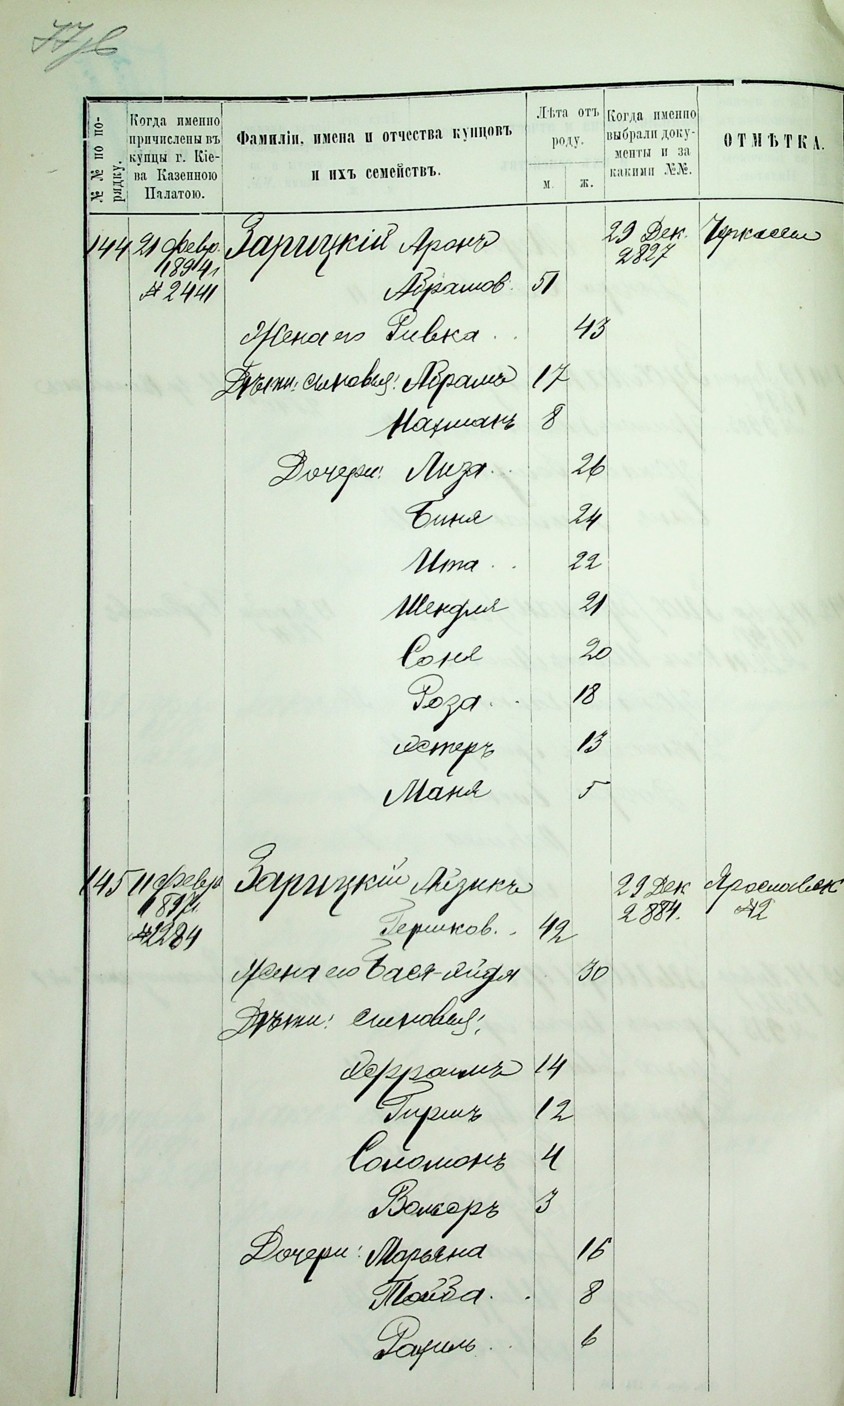 №№ по порядку.
Когда именно причислены въ купцы г. Кіева Казенною Палатою.
Фамиліи, имена и отчества купцовъ и ихъ семействъ.
Лѣта отъ роду.
м. ж.
Когда именно выбрали документы и за какими №№.
ОТМѢТКА.
144 21 февр. Зарицкій Аронъ 29 Дек. Черкассы
1894 г. 2827
№ 2441 Абрамов. 51
Жена его Ривка . . 43
Дѣти: сыновья: Абрамъ 17
Нахманъ 8
Дочери: Лиза . . 26
Биня 24
Ита . . 22
Шендля 21
Соня 20
Роза . . 18
Эстеръ 13
Маня 5
145 11 февр. Зарицкій Айзикъ 29 Дек Ярославск
2884. №2
№2284 Гершков. . 42
Жена его Бася-Хайдя 30
Дѣти: сыновья:
Эфраимъ 14
Гиршъ 12
Соломонъ 4
3
Дочери: Марьяна 16
Тойба . . 8
Рахиль . . 6